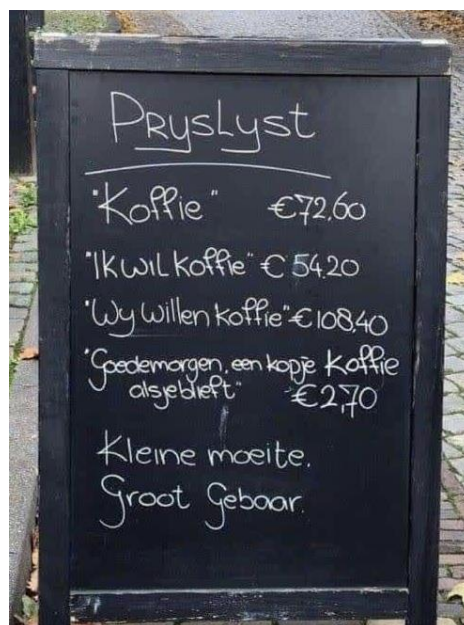 PRysLyst
"Koffie" €72,60
"Ik wil koffie" € 54,20
"Wy willen koffie" €108,40
"Goedemorgen, een kopje Koffie
alsjeblieft" €2,70
Kleine moeite.
Groot Gebaar.